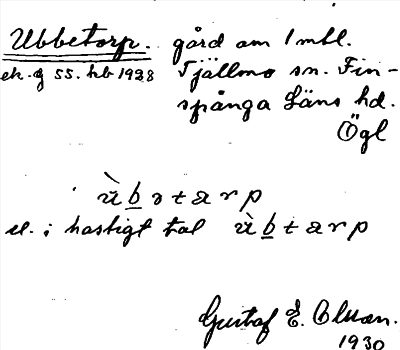 Ubbetorp. gård om 1 mtl.
ek. g 55. hb 1928 Tjällmo sn. Fin-
spånga läns hd.
Ögl
ù b ə t a r p
el. i hastigt tal ù b t a r p
Gustaf E.
1930